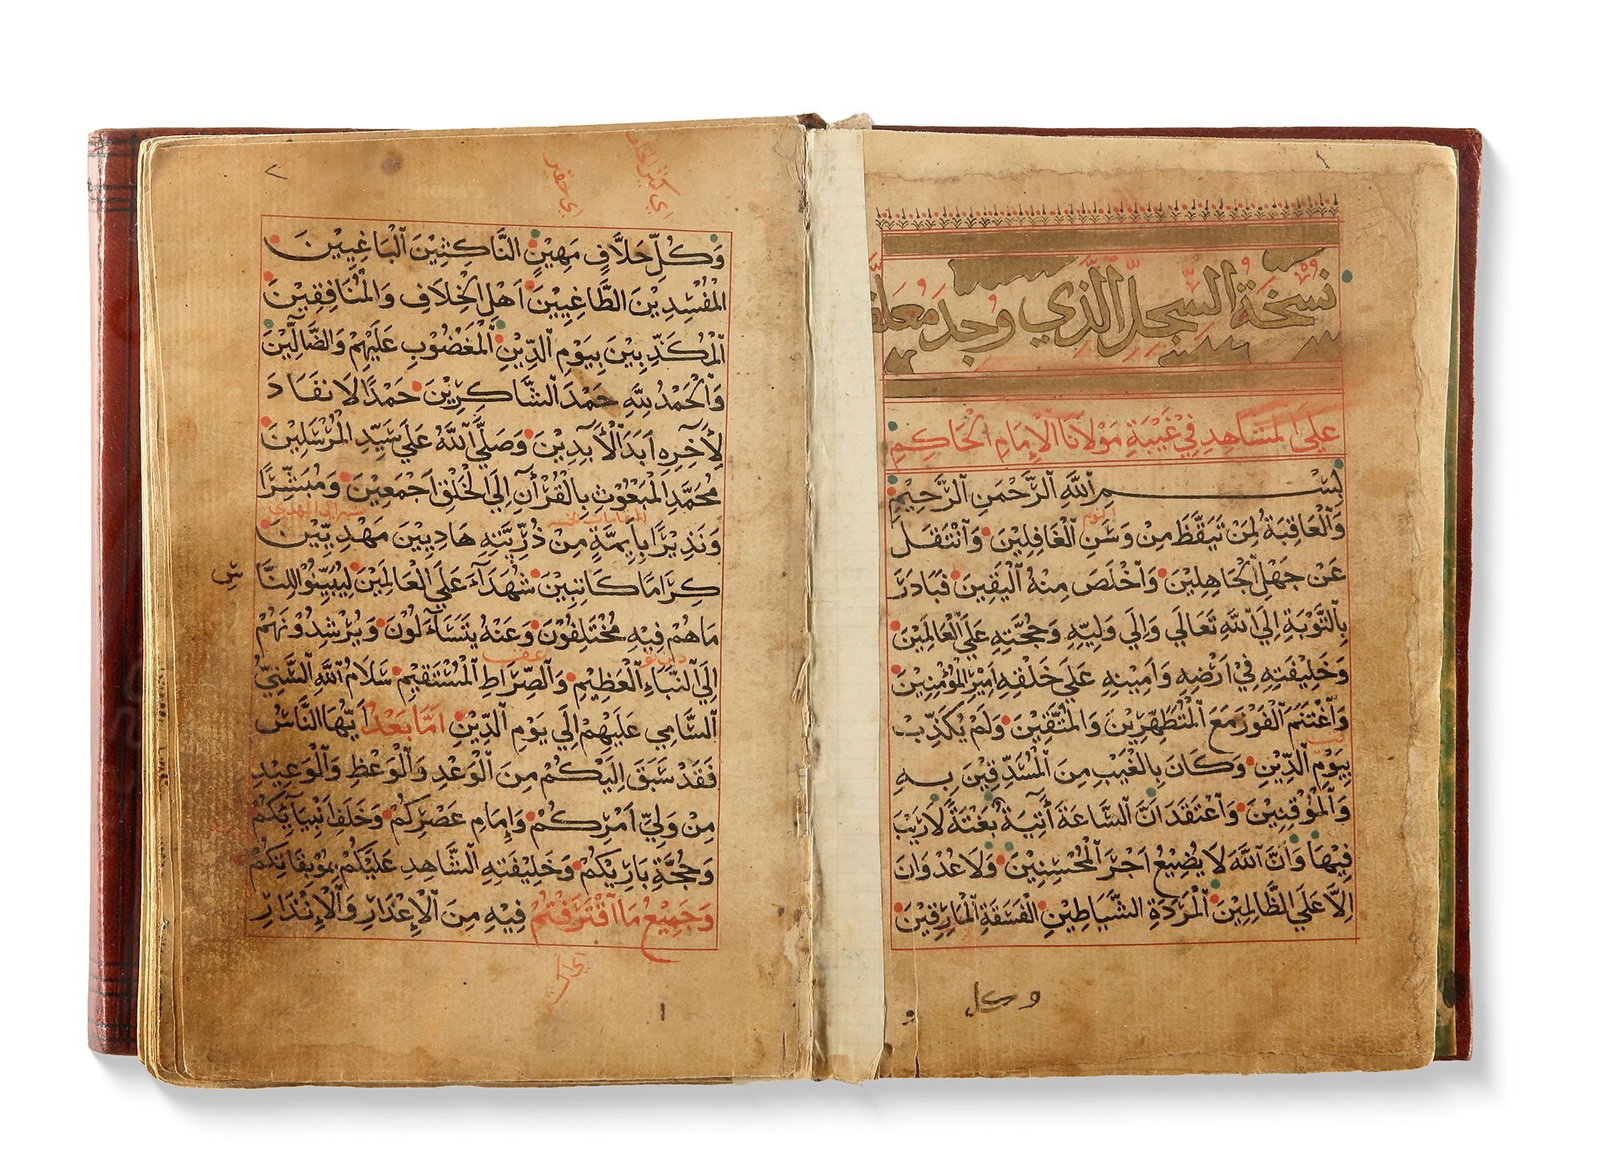 نسخة السجل الذي وجد معلقا
على المشاهد في غيبة مولانا الإمام الحاكم
بسم الله الرحمن الرحيم
وَالْعَاقِبَةُ لِمَنْ تَيَقَّظَ مِنْ وَسَنِ الْغَافِلِيْنَ وَانْتَقَلَ
عَنْ جَهْلِ الْجَاهِلِيْنَ وَاخْلَصَ مِنْهُ الْيَقِيْنَ فَبَادَرَ
بِالتَّوْبَةِ اِلَى اللهِ تَعَالَي وَاِلَي وَلِيِّهِ وَحُجَّتِهِ عَلَي الْعَالَمِيْنَ
وَخَلِيْفَتِهِ فِيْ اَرْضِهِ وَاَمِيْنِهِ عَلَي خَلْقِهِ اَمِيْرِ الْمُؤْمِنِيْنَ
وَاغْتَنَمَ الْفَوْزَ مَعَ الْمُتَطَهِّرِيْنَ وَالْمُتَّقِيْنَ وَلَمْ يُكَذِّبْ
بِيَوْمِ الدِّيْنِ وَكَانَ بِالْغَيْبِ مِنَ الْمُسَدِّقِيْنَ بِهِ
وَالْمُوْقِنِيْنَ وَاعْتَقَدَ انَّ السَّاعَةَ آتِيَةٌ بَغْتَةً لَارَيْبَ
فِيْهَا وَاَنَّ اللهَ لَا يُضِيْعُ اَجْرَ الْمُحْسِنِيْنَ وَلَا عُدْوَانَ
اِلَّا عَلَي الظَّالِمِيْنَ الْمَرَدَةِ الشَّيَاطِيْنِ الْفَسَقَةِ الْمَارِقِيْنَ
وكل
وَكُلِّ حَلَّافٍ مَهِيْنٍ النَّاكِثِيْنَ الْبَاغِيِيْنَ
الْمُفْسِدِيْنَ الطَّاغِيِيْنَ اَهْلِ الْخِلَافِ وَالْمُنَافِقِيْنَ
الْمُكَذِّبِيْنَ بِيَوْمِ الدِّيْنِ الْمَغْضُوْبِ عَلَيْهِمْ وَالضَّالِّيْنَ
وَالْحَمْدُ لِلهِ حَمْدَ الشَّاكِرِيْنَ حَمْدًا لَا نَفَادَ
لِآخِرِهِ اَبَدَ الْأَبِدِيْنَ وَصَلَّي اللهُ عَلَي سَيِّدِ الْمُرْسَلِيْنَ
مُحَمَّدِ الْمَبْعُوْثِ بِالْقُرْآنِ اِلَي الْخَلْقِ اَجْمَعِيْنَ وَمُبَشِّرًا
وَنَذِيْرًا بِاَيِمَّةٍ مِنْ ذُرِّيَّتِهِ هَادِيِيْنَ مَهْدِيِّيْنَ
كِرَامًا كَاتِبِيْنَ شُهَدَآءَ عَلَي الْعَالَمِيْنَ لِيُبَيِّنُوْا لِلنَّا
س
مَا هُمْ فِيْهِ مُخْتَلِفُوْنَ وَعَنْهُ يَتَسَآءَلُوْنَ وَيُرْشِدُوْنَهُمْ
اِلَي النَّبَاءِ الْعَظِيْمِ وَالصِّرَاطِ الْمُسْتَقِيْمِ سَلَامُ اللهِ السَّنِيُّ
السَّامِي عَلَيْهِمْ اِلَي يَوْمِ الدِّيْنِ اَمَّا بَعْدُ اَيُّهَا النَّاسُ
فَقَدْ سَبَقَ اِلَيْكُمْ مِنَ الْوَعْدِ وَالْوَعْظِ وَالْوَعِيْدِ
مِنْ وَلِيِّ اَمْرِكُمْ وَاِمَامِ عَصْرِكُمْ وَخَلَفِ اَنْبِيَائِكُمْ
وَحُجَّةِ بَارِيْكُمْ وَخَلِيْفَتِهِ الشَّاهِدِ عَلَيْكُمْ بِمُوْبِقَاتِكُمْ
وَجَمِيْعِ مَا اقْتَرَفْتُمْ فِيْهِ مِنَ الْاِعْذَارِ وَالْاِنْذَارِ